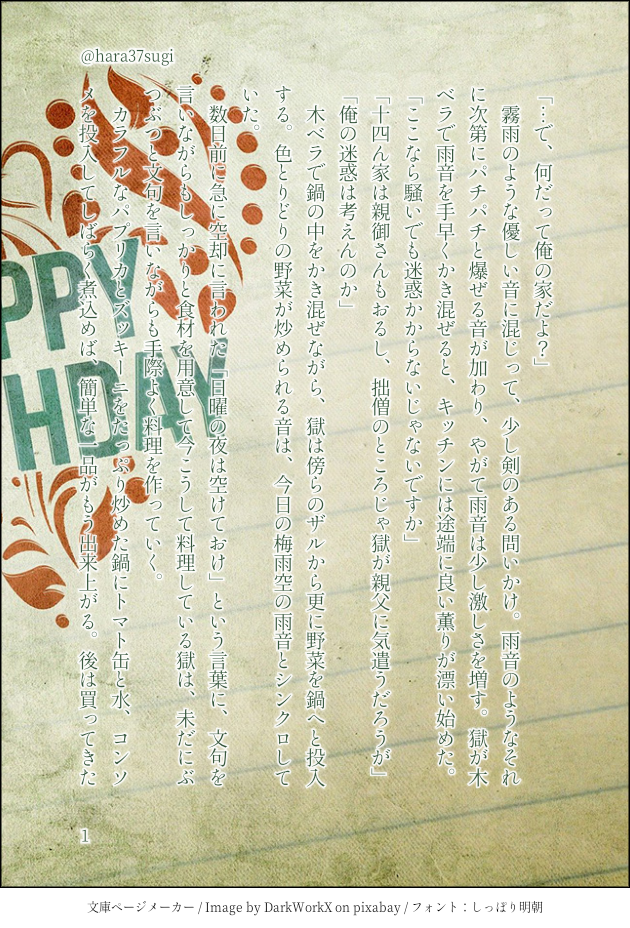 @hara37sugi
「…で、何だって俺の家だよ？」
　霧雨のような優しい音に混じって、少し剣のある問いかけ。雨音のようなそれ
に次第にパチパチと爆ぜる音が加わり、やがて雨音は少し激しさを増す。獄が木
ベラで雨音を手早くかき混ぜると、キッチンには途端に良い薫りが漂い始めた。
「ここなら騒いでも迷惑かからないじゃないですか」
「十四ん家は親御さんもおるし、拙僧のところじゃ獄が親父に気遣うだろうが」
「俺の迷惑は考えんのか」
　木ベラで鍋の中をかき混ぜながら、獄は傍らのザルから更に野菜を鍋へと投入
する。色とりどりの野菜が炒められる音は、今日の梅雨空の雨音とシンクロして
いた。
　数日前に急に空却に言われた「日曜の夜は空けておけ」という言葉に、文句を
言いながらもしっかりと食材を用意して今こうして料理している獄は、未だにぶ
つぶつと文句を言いながらも手際よく料理を作っていく。
　カラフルなパプリカとズッキーニをたっぷり炒めた鍋にトマト缶と水、コンソ
メを投入してしばらく煮込めば、簡単な一品がもう出来上がる。後は買ってきた
PPY
HDAY
1
文庫ページメーカー / Image by DarkWorkX on pixabay / フォント：しっぽり明朝